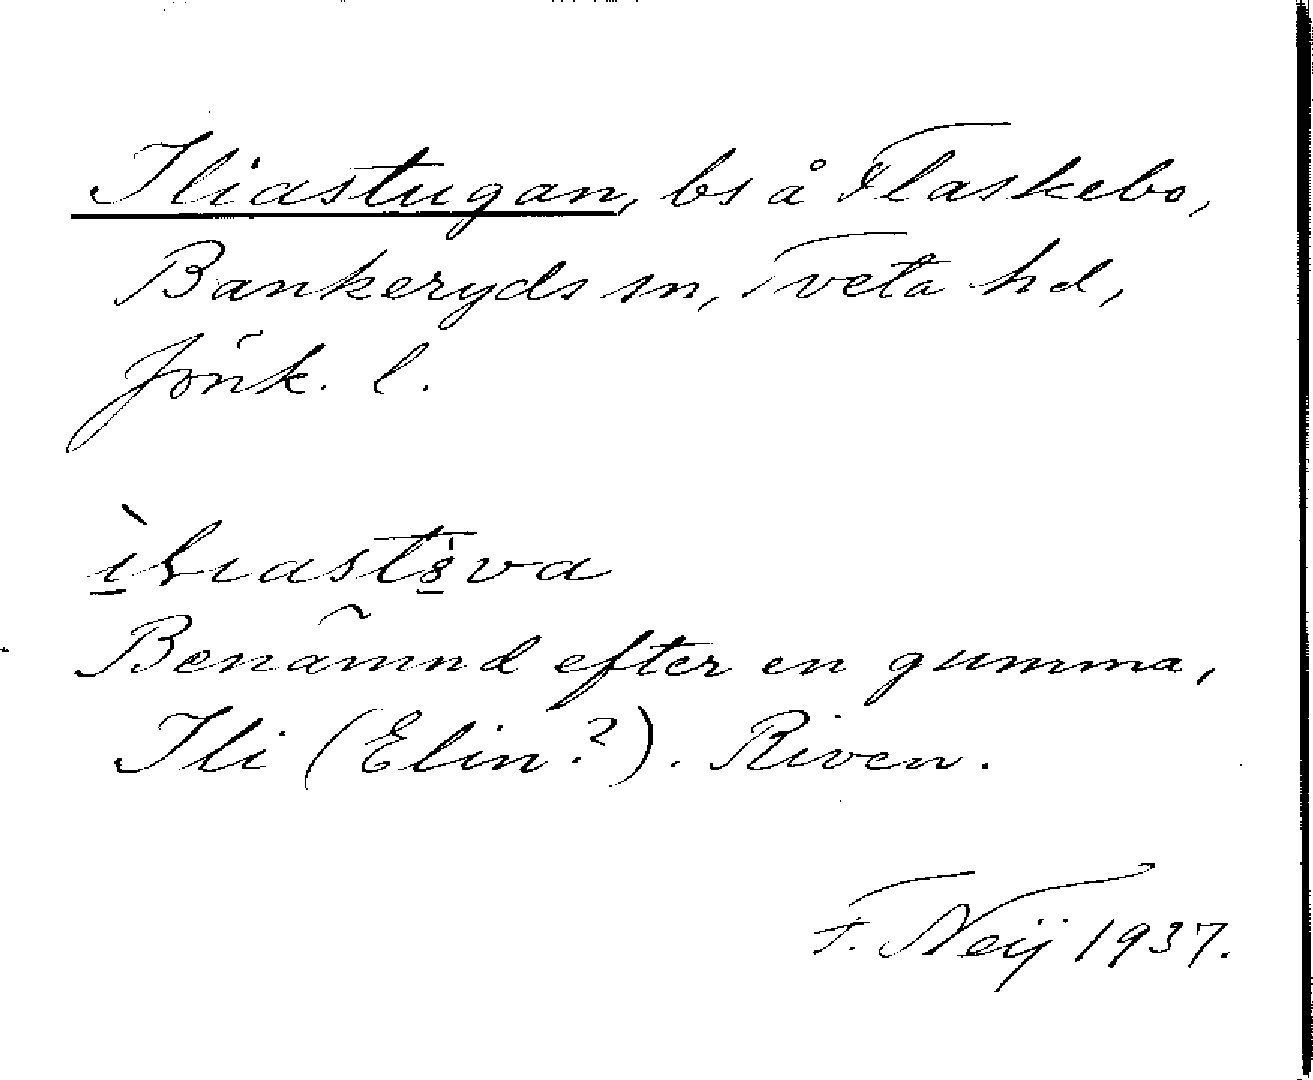 Iliastugan, bs å Flaskebo,
Bankeryds sn, Tveta hd,
Jönk. l.
Benämnd efter en gumma,
Ili (Elin?). Riven.
F. Neij 1937.